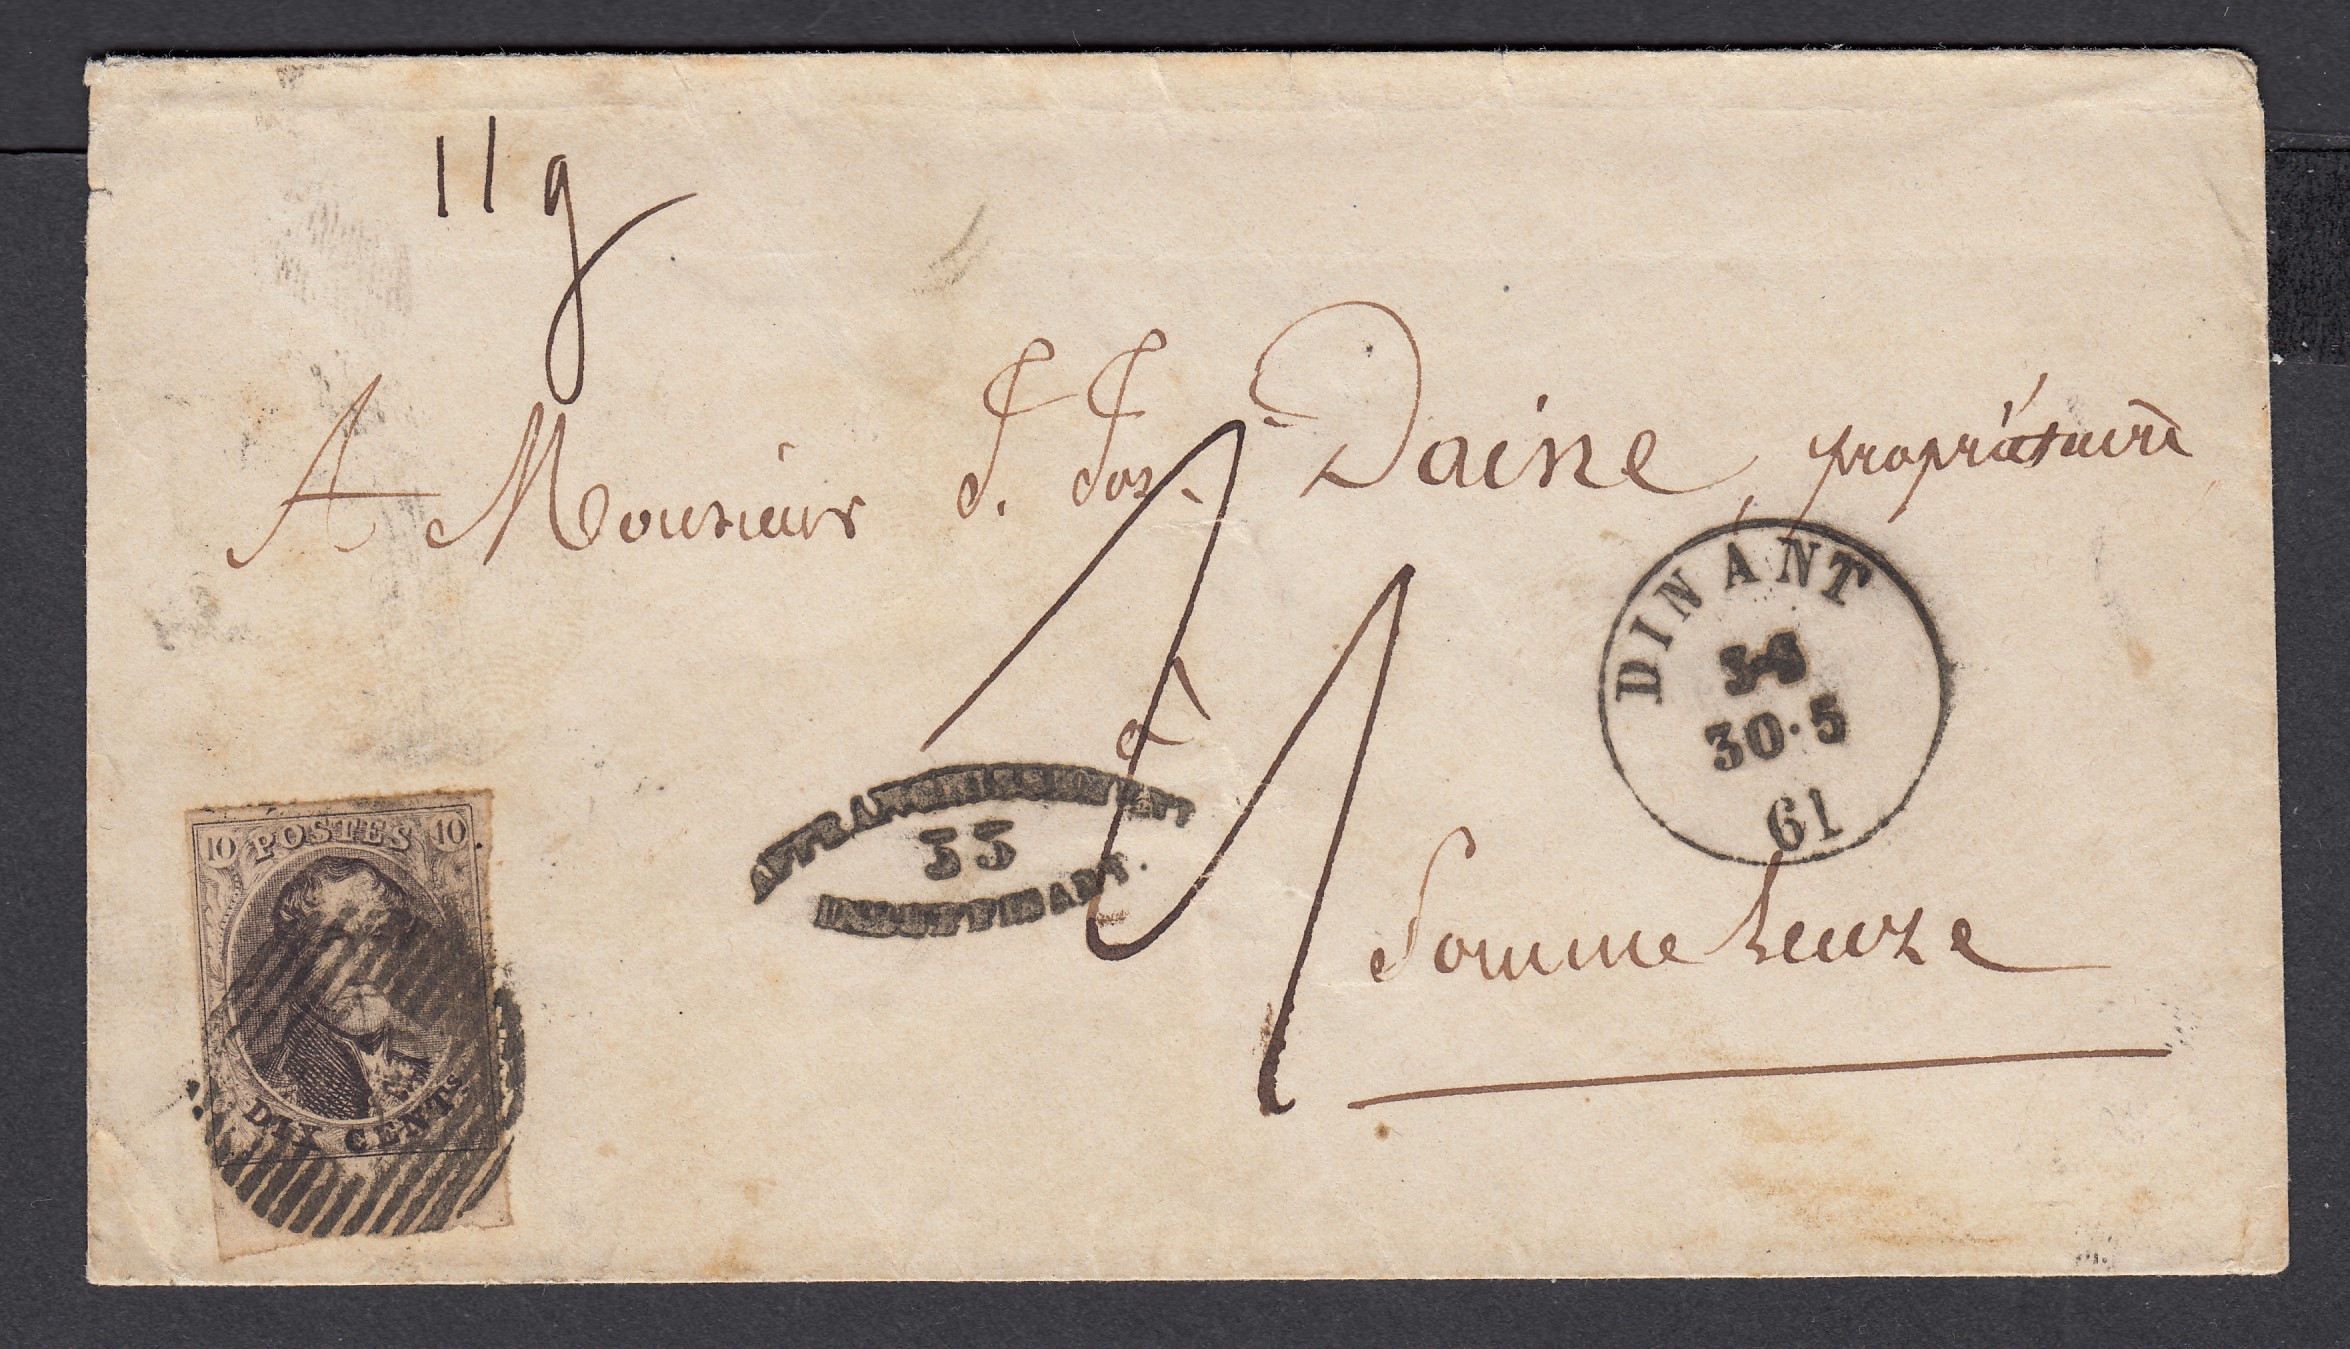 11 g
A Monsieur J. Jos. Daine, propriétaire
à
Somme Leuze
DINANT
3-S
30·5
61
AFFRANCHISSEMENT
33
INSUFFISANT.
10 POSTES 10
DIX CENTS